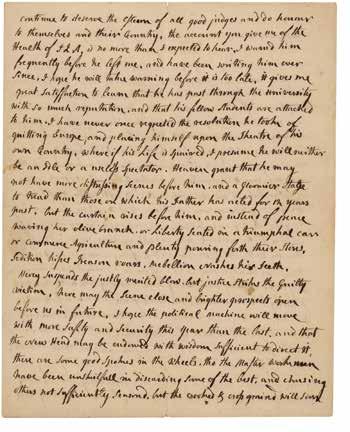 continue to deserve the esteem of all good judges and do honour
to themselves and their Country, the account you give me of the
Health of J Q A, is no more than I expected to hear. I warnd him
frequently before he left me, and have been writing him ever
since. I hope he will take warning before it is too late. it gives me
great satisfaction to learn that he has past through the University
with so much reputation, and that his fellow Students are attached
to him. I have never once regreted the resolution he took of
quitting Europe, and placing himself upon the Theatre of his
own Country, where if his Life is spaired, I presume he will neither
be an Idle or a useless Spectator. Heaven grant that he may
not have more distressing scenes before him, and a gloomier stage
to tread than those on which his Father has acted for 12 years
past, but the curtain rises before him, and instead of peace
waving her olive branch, or Liberty seated in a triumphal car
or commerce Agriculture and plenty pouring forth their Stores,
Sedition hisses Treason roars, rebellion gnashes his Teeth.
Mercy suspends the justly merited blow, but justice strikes the Guilty
victim. here may the Scene close and brighter prospects open
before us in future. I hope the political machine will move
with more safety and security this year than the last, and that
the New Head may be endowed with wisdom sufficient to direct it.
there are some good Spokes in the Wheels, tho the Master workmen
have been unskilfull in discarding some of the best, and chusing
others not sufficiently seasond, but the crooked & cross graind will soon